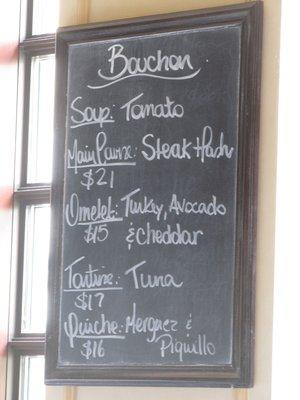 Bouchon
Soup: Tomato
Steak Hash
$21
Omelet: Turkey, Avocado
$15 & cheddar
Tartine: Tuna
$17
Quiche: Merguez &
$16 Piquillo